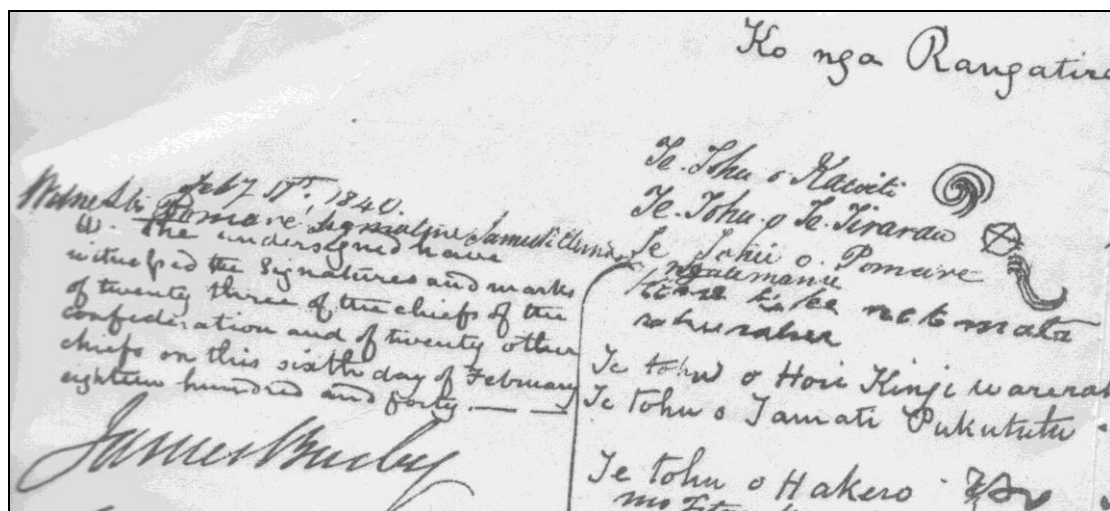 Ko nga Rangatira
Feby 17th, 1840.
Witness to Pomare's signature James
We the undersigned have
witnessed the Signatures and marks
of twenty three of the chiefs of the
confederation and of twenty other
chiefs on this sixth day of February
eighteen hundred and forty.
James Busby
Te Tohu o Kawiti
Te Tohu o Te Tirarau
Te Tohu o Pomare
ngatimanu
Te tohu o Hori Kingi warerah
Te tohu o Tamati Pukututu
Te tohu o Hakero
mo